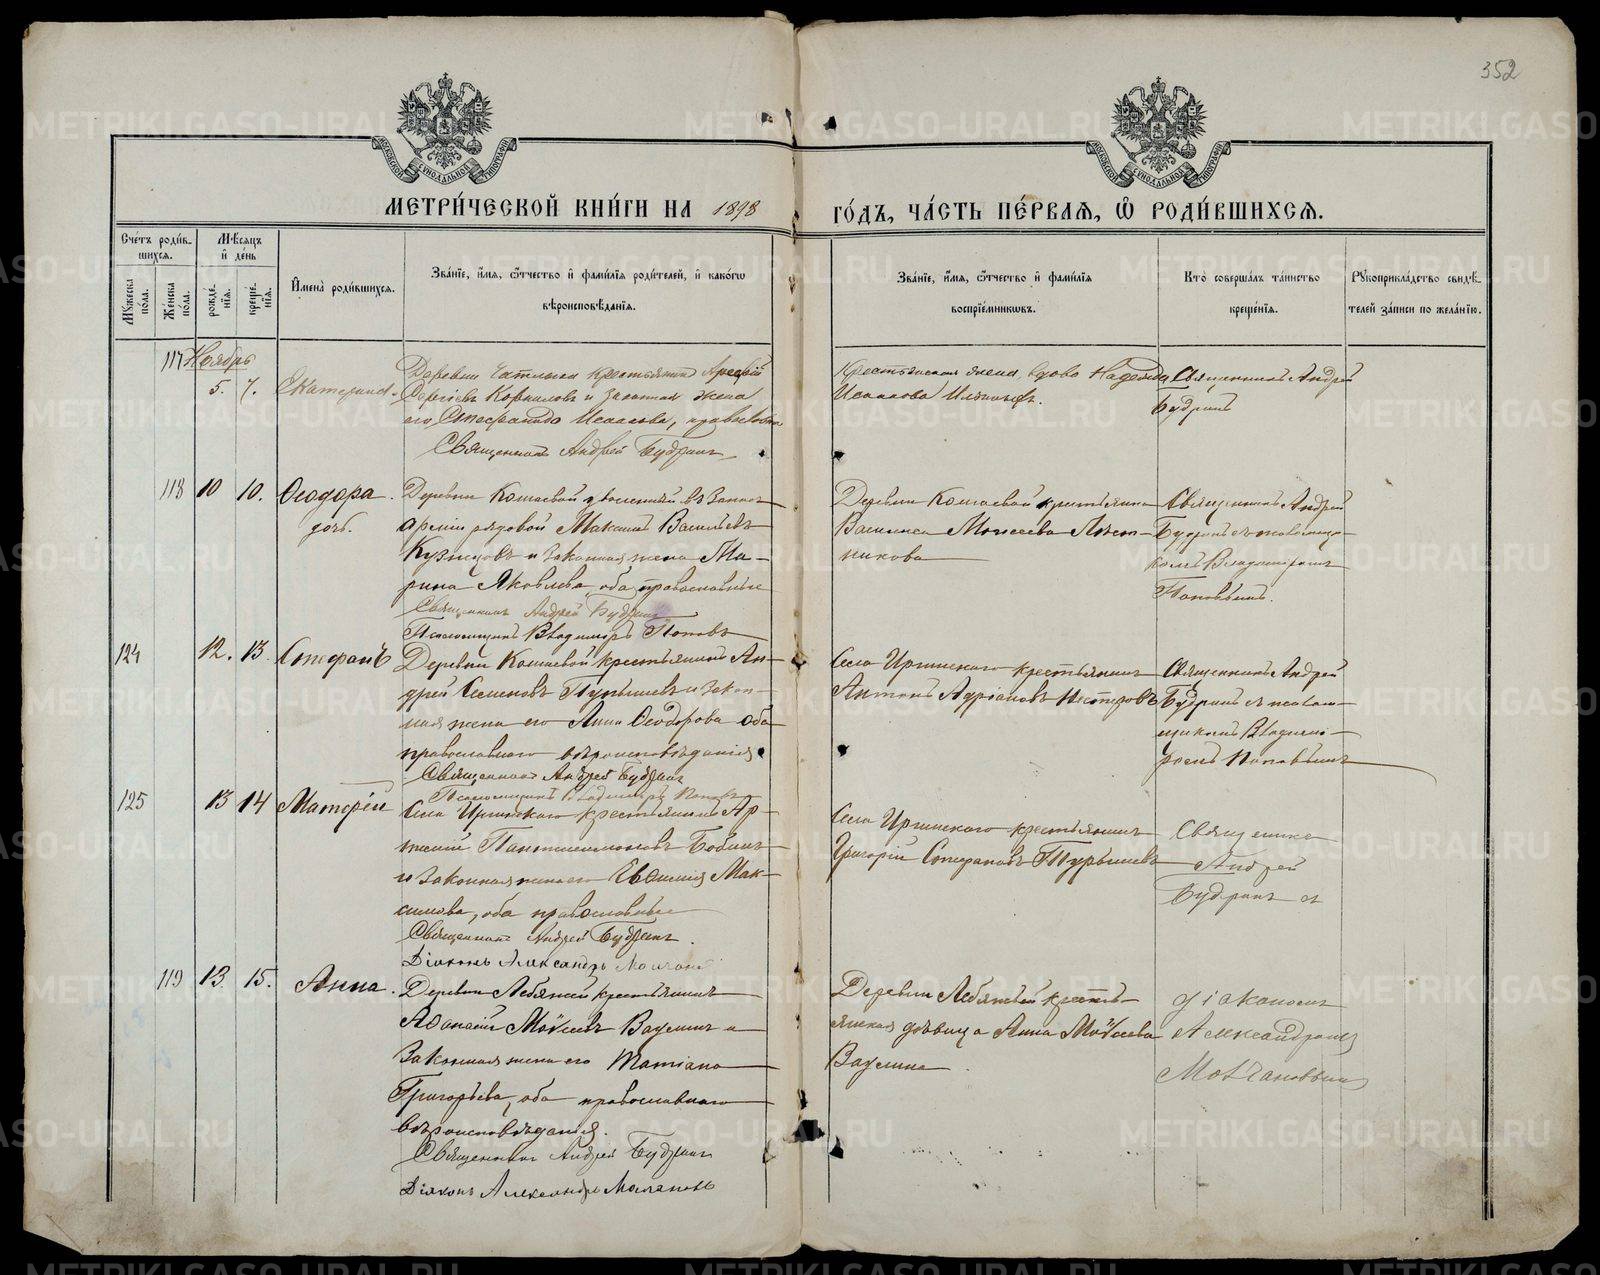 352
МЕТРИ́ЧЕСКОЙ КНИ́ГИ НА 1898
ГО́ДЪ, ЧА́СТЬ ПЕ́РВАЯ, Ѡ РОДИ́ВШИХСЯ.
МОСКОВСКОЙ СѴНОДАЛЬНОЙ ТИПОГРАФІИ
МОСКОВСКОЙ СѴНОДАЛЬНОЙ ТИПОГРАФІИ
Сче́тъ роди́вшихся.
Му́жеска по́ла.
Же́нска по́ла.
Мѣ́сяцъ и де́нь
рожде́нїя.
креще́нїя.
Имена̀ роди́вшихся.
Зва́нїе, и́мя, о́тчество и фами́лїя роди́телей, и како́гѡ
вѣроисповѣ́данїя.
Зва́нїе, и́мя, о́тчество и фами́лїя
воспрїе́мникѡвъ.
Кто̀ соверша́лъ та́инство
креще́нїя.
Рꙋкоприкла́дство свидѣ́телей за́писи по жела́нїю.
117 Ноябрь
5. 7. Екатерина.
Деревни крестьянинъ
Сергіевъ Корниловъ и законная жена
его Исаакова, православны
Священникъ Андрей Будринъ
Крестьянская жена, вдова Надежда
Исаакова
Священникъ Андрей
Будринъ
118 10 10. Ѳеодора
дочь.
Деревни Кошаевой уволенный въ запасъ
арміи рядовой Максимъ Васильевъ
Кузнецовъ и законная жена Ма-
рина Яковлева, оба православные
Священникъ Андрей Будринъ
Псаломщикъ Владиміръ Поповъ
Деревни Кошаевой крестьянина
Василиса Моисеева
никова
Священникъ Андрей
Будринъ съ псаломщи-
комъ Владиміромъ
Поповымъ.
124 12. 13. Стефанъ
Деревни Кошаевой крестьянинъ Ан-
дрей Семеновъ Турышевъ и закон-
ная жена его Анна Ѳеодорова оба
православнаго вѣроисповѣданія
Священникъ Андрей Будринъ
Псаломщикъ Владиміръ Поповъ
Села Иргинскаго крестьянинъ
Антонъ Адріановъ Нестеровъ
Священникъ Андрей
Будринъ съ псалом-
щикомъ Владимі-
ромъ Поповымъ
125 13 14 Матѳей
Села Иргинскаго крестьянинъ Ар-
темій Пантелеимоновъ Бобинъ
и законная жена его Евѳимія Мак-
симова, оба православные
Священникъ Андрей Будринъ.
Діаконъ Александръ Молчановъ
Села Иргинскаго крестьянинъ
Григорій Стефановъ Турышевъ
Священникъ
Андрей
Будринъ съ
119 13. 15. Анна.
Деревни Лебяжьей крестьянинъ
Аѳанасій Моѵсеевъ Ваулинъ и
законная жена его Татіана
Григорьева, оба православнаго
вѣроисповѣданія.
Священникъ Андрей Будринъ
Діаконъ Александръ Молчановъ
Деревни Лебяжьей кресть-
янская дѣвица Анна Моѵсеева
Ваулина
діакономъ
Александромъ
Молчановымъ
METRIKI.GASO-URAL.RU